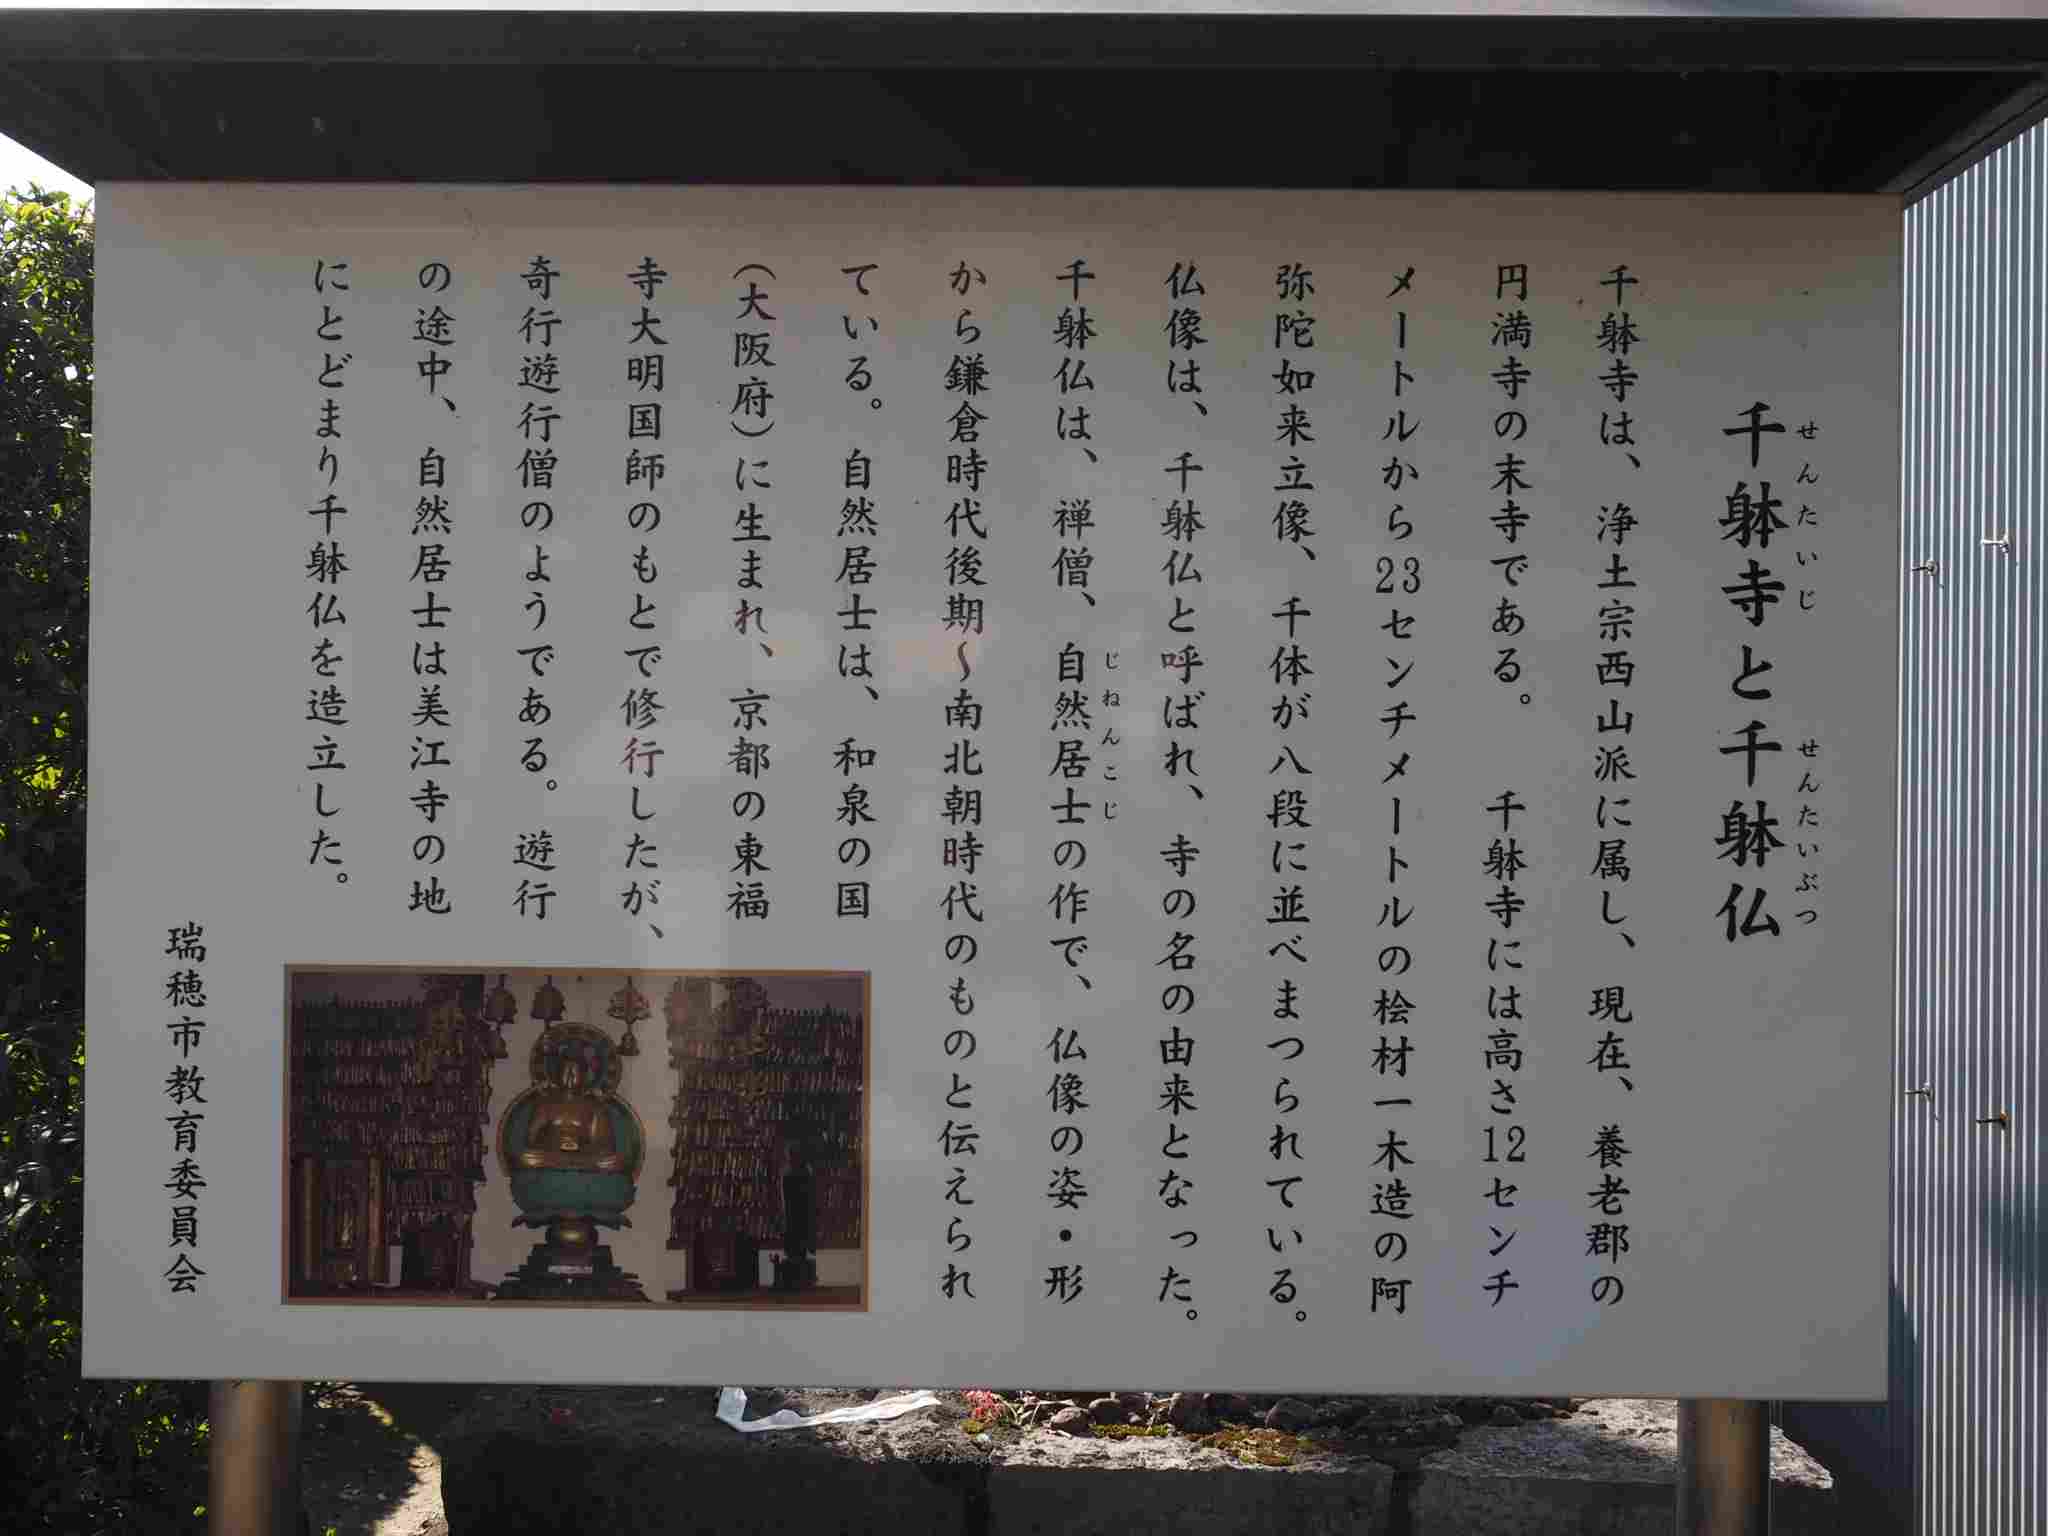 千躰寺と千躰仏
せんたいじ
せんたいぶつ
千躰寺は、浄土宗西山派に属し、現在、養老郡の
円満寺の末寺である。　千躰寺には高さ12センチ
メートルから23センチメートルの桧材一木造の阿
弥陀如来立像、千体が八段に並べまつられている。
仏像は、千躰仏と呼ばれ、寺の名の由来となった。
千躰仏は、禅僧、自然居士の作で、仏像の姿・形
じねんこじ
から鎌倉時代後期～南北朝時代のものと伝えられ
ている。自然居士は、和泉の国
（大阪府）に生まれ、京都の東福
寺大明国師のもとで修行したが、
奇行遊行僧のようである。遊行
の途中、自然居士は美江寺の地
にとどまり千躰仏を造立した。
瑞穂市教育委員会